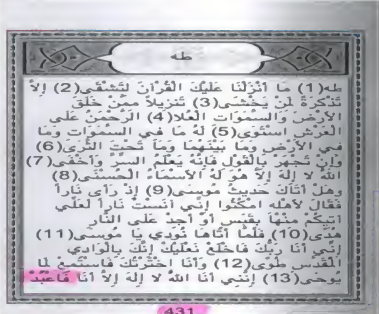 طه
طه(1) مَا أَنْزَلْنَا عَلَيْكَ الْقُرْآنَ لِتَشْقَى(2) إِلاَّ
تَذْكِرَةً لِمَنْ يَخْشَى(3) تَنزِيلاً مِمَّنْ خَلَقَ
الأَرْضَ وَالسَّمَوَاتِ الْعُلاَ(4) الرَّحْمَنُ عَلَى
الْعَرْشِ اسْتَوَى(5) لَهُ مَا فِي السَّمَوَاتِ وَمَا
فِي الأَرْضِ وَمَا بَيْنَهُمَا وَمَا تَحْتَ الثَّرَى(6)
وَإِنْ تَجْهَرْ بِالْقَوْلِ فَإِنَّهُ يَعْلَمُ السِّرَّ وَأَخْفَى(7)
اللهُ لاَ إِلَهَ إِلاَّ هُوَ لَهُ الأَسْمَاءُ الْحُسْنَى(8)
وَهَلْ أَتَاكَ حَدِيثُ مُوسَى(9) إِذْ رَأَى نَاراً
فَقَالَ لأَهْلِهِ امْكُثُوا إِنِّي آنَسْتُ نَاراً لَعَلِّي
آتِيكُمْ مِنْهَا بِقَبَسٍ أَوْ أَجِدُ عَلَى النَّارِ
هُدًى(10) فَلَمَّا أَتَاهَا نُودِيَ يَا مُوسَى(11)
إِنِّي أَنَا رَبُّكَ فَاخْلَعْ نَعْلَيْكَ إِنَّكَ بِالْوَادِي
الْمُقَدَّسِ طُوًى(12) وَأَنَا اخْتَرْتُكَ فَاسْتَمِعْ لِمَا
يُوحَى(13) إِنَّنِي أَنَا اللهُ لاَ إِلَهَ إِلاَّ أَنَا فَاعْبُدْ
431